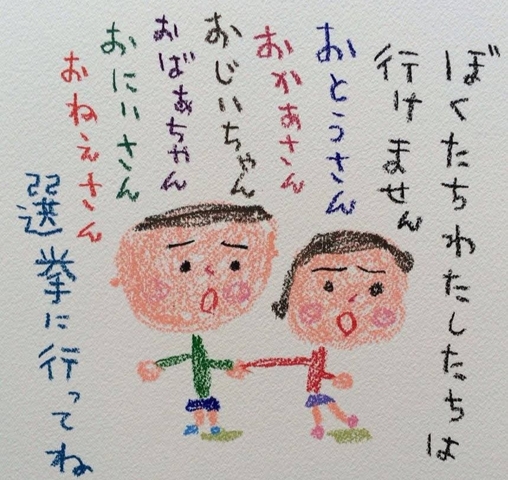 ぼくたちわたしたちは
行けません
おとうさん
おかあさん
おじいちゃん
おばあちゃん
おにいさん
おねえさん
選挙に行ってね